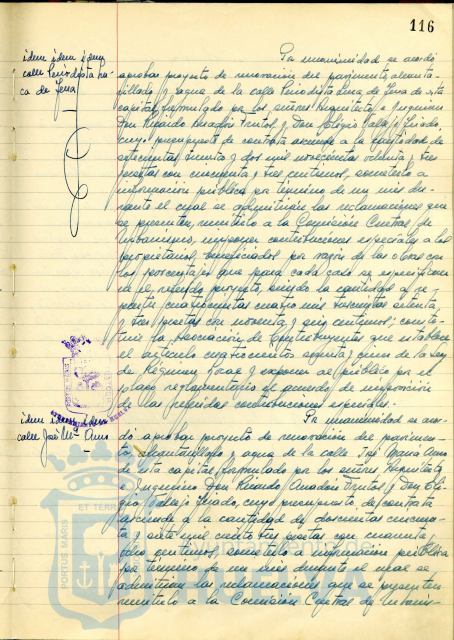 116
idem idem idem
calle Periodista Lu-
ca de Tena
Por unanimidad se acordó
aprobar proyecto de renovación del pavimento, alcanta-
rillado y agua de la calle Periodista Luca de Tena de esta
capital, formulado por los señores Arquitecto e Ingeniero
Don Ricardo Anadón Frutos y Don Eligio
cuyo presupuesto de contrata asciende a la cantidad de
setecientas treinta y dos mil novecientas ochenta y tres
pesetas con cincuenta y tres centimos, someterlo a
información pública por término de un mes du-
rante el cual se admitirán las reclamaciones que
se presenten, remitirlo a la Comisión Central de
Urbanismo, imponer contribuciones especiales a los
propietarios beneficiados por razón de las obras con
los porcentajes que para cada caso se especifican
en el referido proyecto, siendo la cantidad a re-
partir cuatrocientas cuatro mil doscientas setenta
y tres pesetas con noventa y seis centimos; consti-
tuir la Asociación de Contribuyentes que establece
el artículo cuatrocientos sesenta y cinco de la Ley
de Régimen Local y exponer al público por el
plazo reglamentario el acuerdo de imposición
de las referidas contribuciones especiales.
idem idem idem
calle José Mª Amo
Por unanimidad se acor-
dó aprobar proyecto de renovación del pavimen-
to, alcantarillado y agua de la calle José María Amo
de esta capital, formulado por los señores Arquitecto
e Ingeniero Don Ricardo Anadón Frutos y Don Eli-
gio cuyo presupuesto de contrata
asciende a la cantidad de doscientas cincuen-
ta y siete mil ciento tres pesetas con cuarenta y
ocho centimos, someterlo a información pública
por término de un mes durante el cual se
admitirán las reclamaciones que se presenten
remitirlo a la Comisión Central de Urbanis-
PORTUS MARIS ET TERRAE
HUELVA